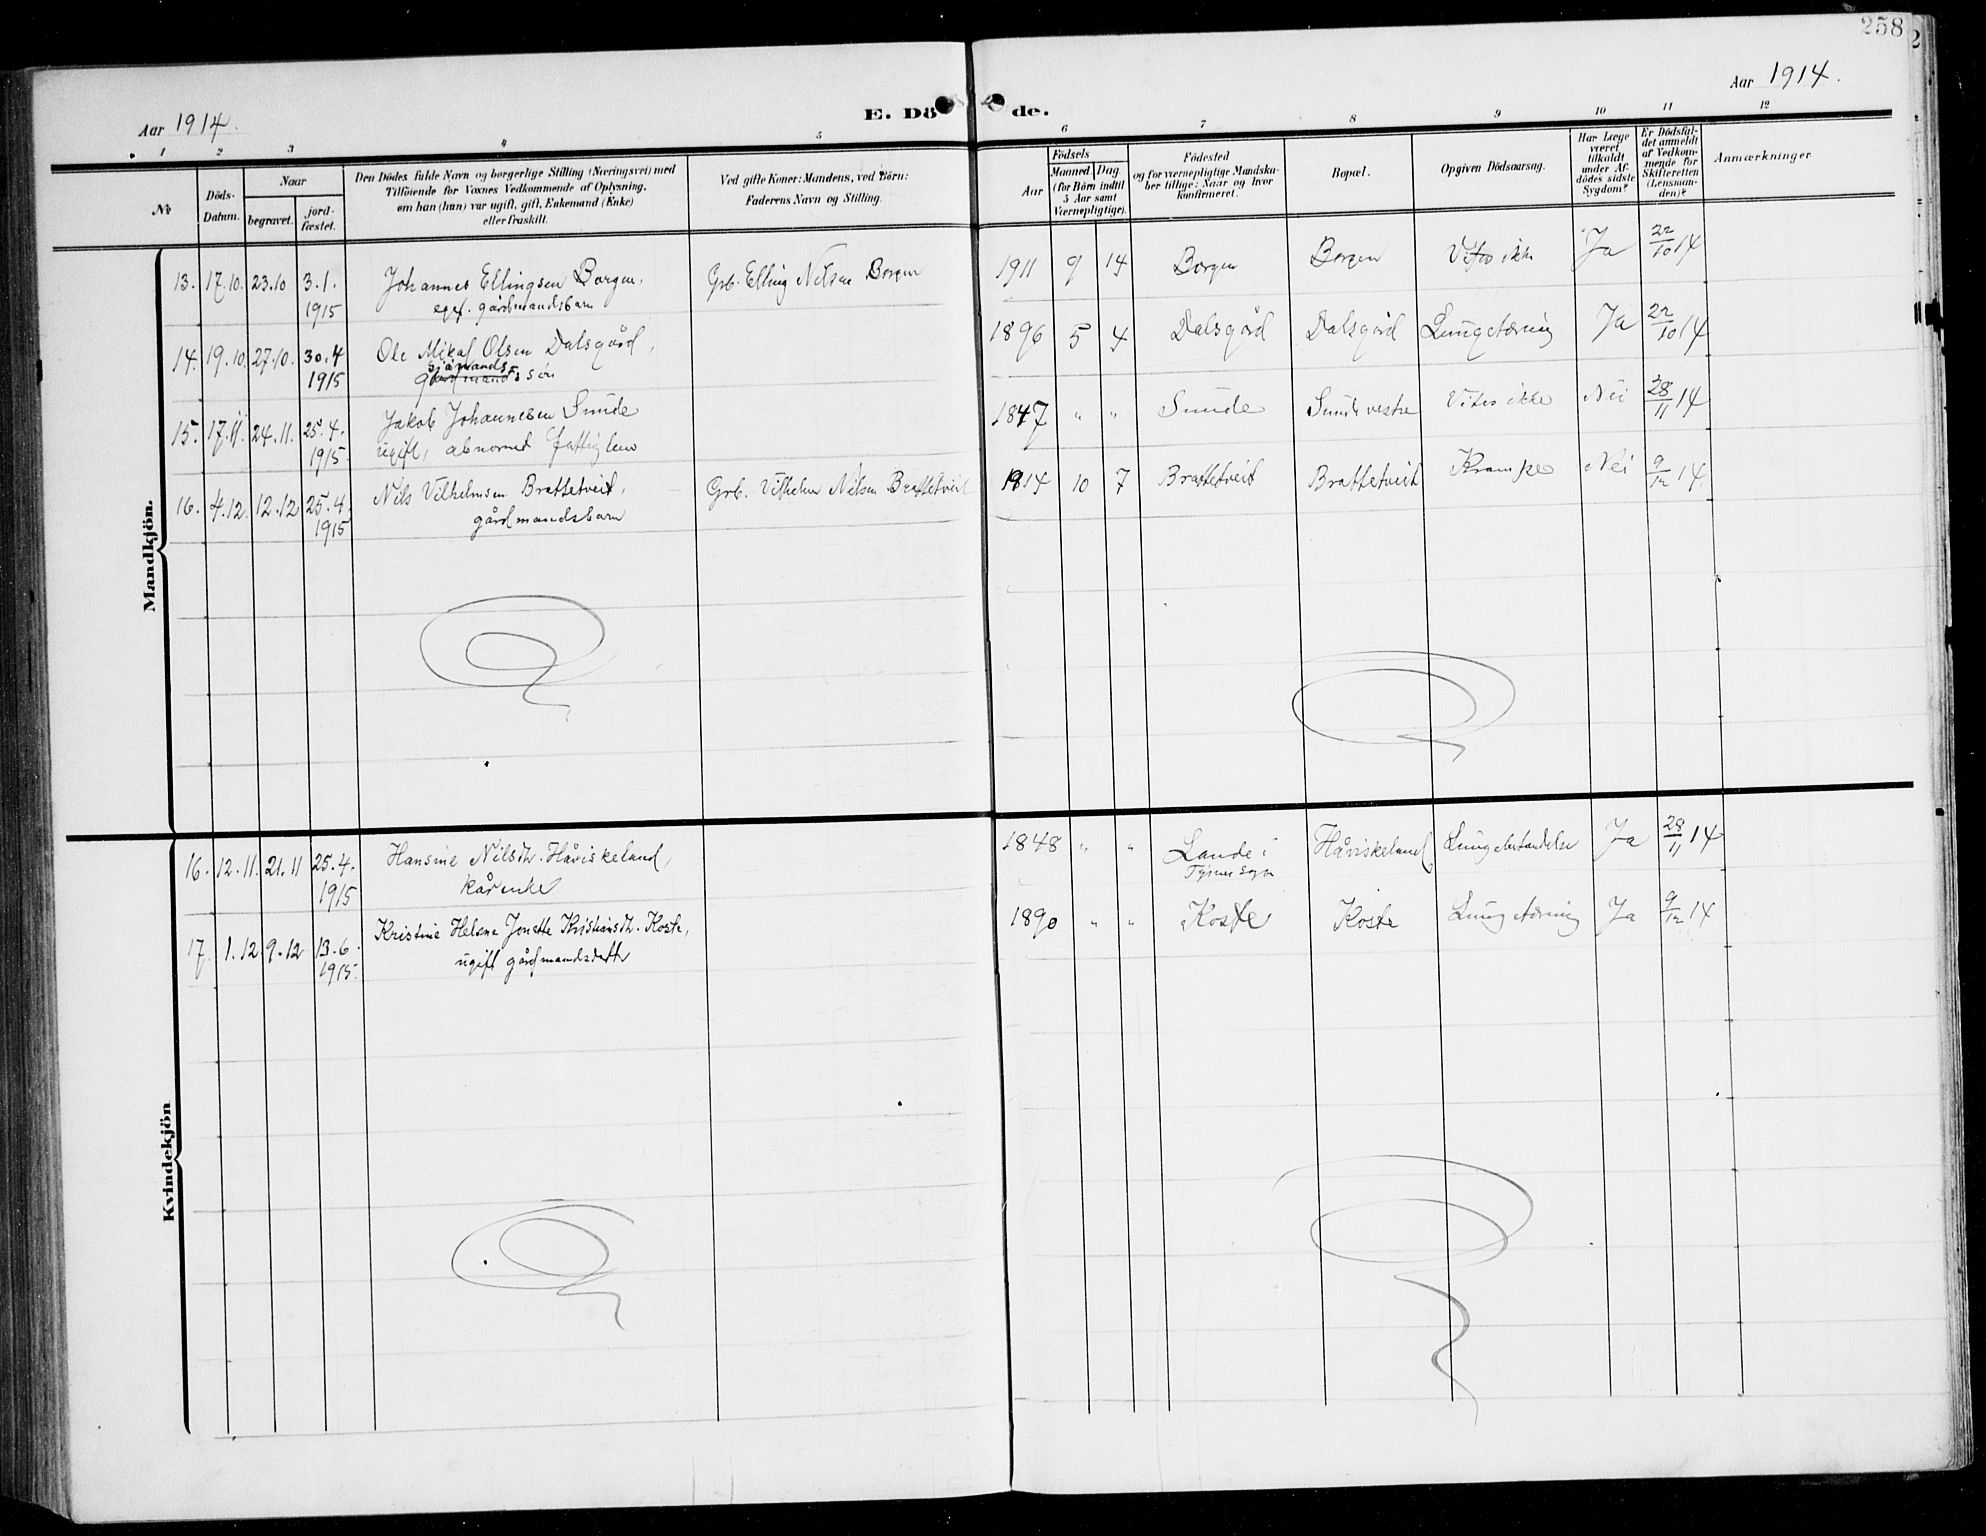 258
Aar 1914.
E. Dö de.
Aar 1914.
1 2 3 4 5 6 7 8 9 10 11 12
No
Döds-Datum.
Naar
begravet.
jord-fæstet.
Den Dödes fulde Navn og borgerlige Stilling (Næringsvei) med
Tilföiende for Voxnes Vedkommende af Oplysning,
om han (hun) var ugift, gift, Enkemand (Enke)
eller fraskilt.
Ved gifte Koner: Mandens, ved Börn:
Faderens Navn og Stilling.
Födsels
Aar
Maaned Dag
(for Börn indtil
5 Aar samt
Værnepligtige).
Födested
og for værnepligtige Mandska-
ber tillige: Naar og hvor
konfirmeret.
Bopæl.
Opgiven Dödsaarsag.
Har Læge
været
tilkaldt
under Af-
dödes sidste
Sygdom?
Er Dödsfal-
det anmeldt
af Vedkom-
mende for
Skifteretten
(Lensman-
den)?
Anmærkninger
Mandkjön.
13. 17.10. 23.10 3.1. 1915 Johannes Ellingsen Borgen, Grb. Elling Nilsen Borgen 1911 9 14 Borgen Borgen Vites ikke Ja 22/10 14
gårdmandsbarn
14. 19.10. 27.10. 30.4 1915 Ole Mikal Olsen Dalsgård, 1896 5 4 Dalsgård Dalsgård Lungetæring Ja 22/10 14
sjømands
gårdmandssøn
15. 17.11. 24.11. 25.4. 1915. Jakob Johannesen Sunde 1847 " " Sunde Sunde vestre Vites ikke Nei 28/11 14
ugift, abnormd fattiglem
16. 4.12. 12.12 25.4. 1915 Nils Vilhelmsen Brattetveit, Grb. Vilhelm Nilsen Brattetveit 1914 10 7 Brattetveit Brattetveit Krampe Nei 9/12 14.
gårdmandsbarn
Kvindekjön
16. 12.11. 21.11 25.4. 1915 Hansine Nilsdtr. Håviskeland, 1848 " " Lande i Tysnes sogn Håviskeland Lungebetændelse Ja 28/11 14
kårenke
17. 1.12 9.12 13.6. 1915. Kristine Helene Jonette Kristiansdtr. Koste, 1890 " " Koste Koste Lungetæring Ja 9/12 14
ugift gårdmandsdatter